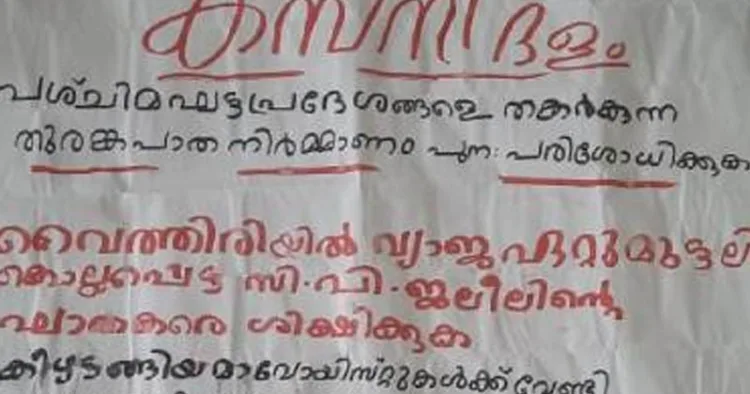 കബനീദളം
പശ്ചിമഘട്ടപ്രദേശങ്ങളെ തകർക്കുന്ന
തുരങ്കപാത നിർമ്മാണം പുന:പരിശോധിക്കുക
വൈത്തിരിയിൽ വ്യാജഏറ്റുമുട്ടലി
കൊല്ലപ്പെട്ട സി.പി.ജലീലിന്റെ
ഘാതകരെ ശിക്ഷിക്കുക
കീഴടങ്ങിയമാവോയിസ്റ്റുകൾക്ക് വേണ്ടി